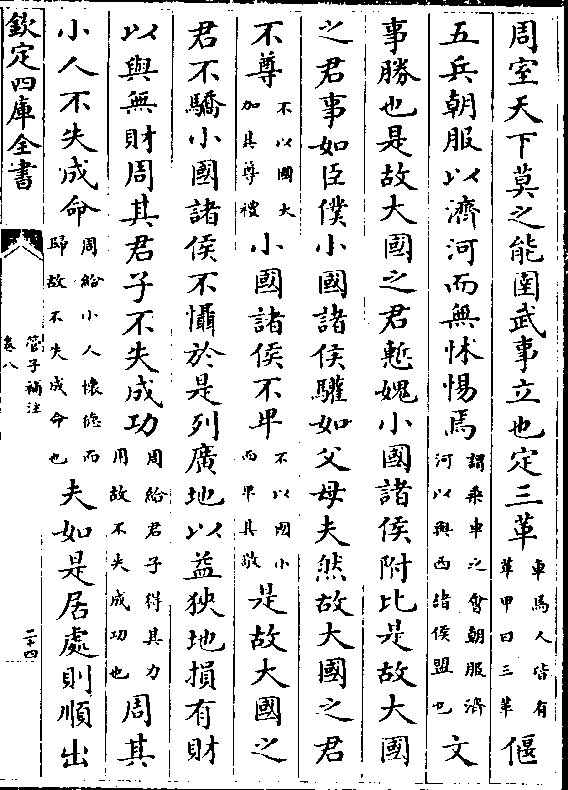 周室天下莫之能圉武事立也定三革車馬人皆有革甲曰三革偃
五兵朝服以濟河而無怵惕焉謂乘車之會朝服濟河以與西諸侯盟也文
事勝也是故大國之君慙媿小國諸侯附比是故大國
之君事如臣僕小國諸侯驩如父母夫然故大國之君
不尊不以國大加其尊禮小國諸侯不卑不以國小而卑其敬是故大國之
君不驕小國諸侯不懾於是列廣地以益狹地損有財
以與無財周其君子不失成功周給君子得其力用故不失成功也周其
小人不失成命周給小人懷德而歸故不失成命也夫如是居處則順出
欽定四庫全書
管子補注
卷八
二十四